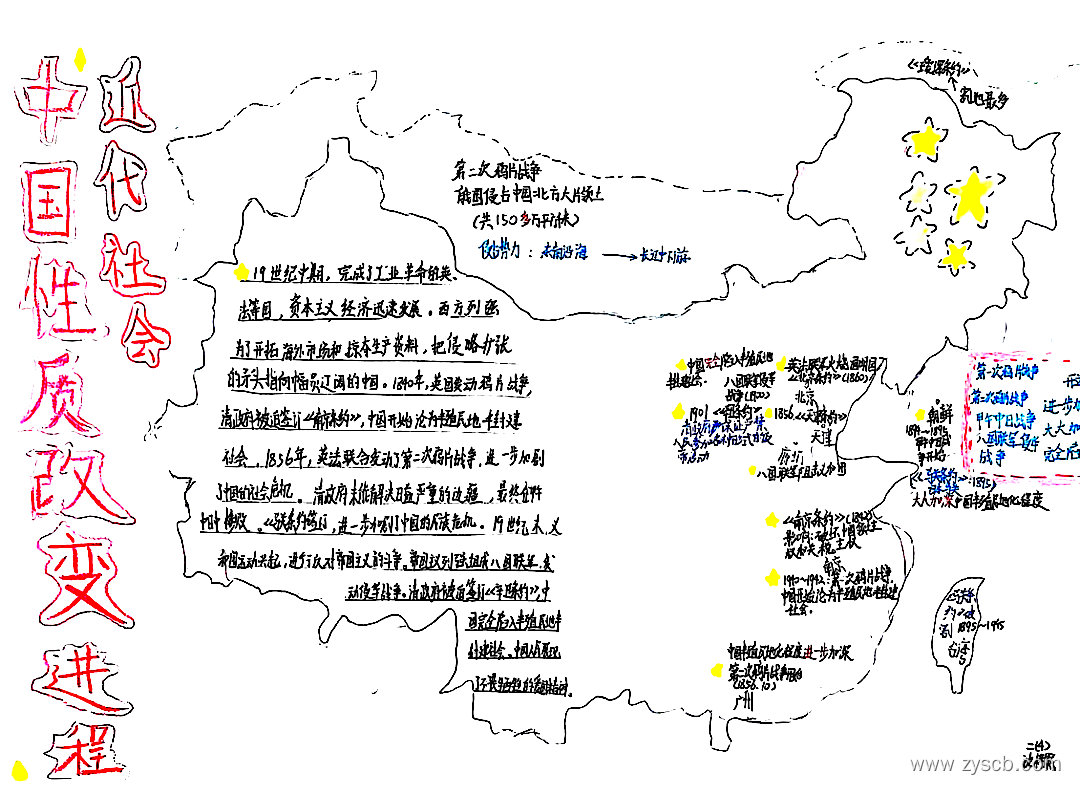 近代社会
中国性质改变进程
《瑷珲条约》
割地最多
第二次鸦片战争
俄国侵占中国北方大片领土
(共150多万平方千米)
侵略势力：东南沿海 → 长江中下游
19世纪中期，完成了工业革命的英、
法等国，资本主义经济迅速发展。西方列强
为了开拓海外市场和掠夺生产资料，把侵略扩张
的矛头指向幅员辽阔的中国。1840年，英国发动鸦片战争，
清政府被迫签订《南京条约》，中国开始沦为半殖民地半封建
社会。1856年，英法联合发动了第二次鸦片战争，进一步加剧
了中国的社会危机。清政府未能解决日益严重的边疆
《马关条约》签订，进一步加剧了中国的民族危机。19世纪末，义
和团运动兴起，进行了反对帝国主义的斗争。帝国主义列强组成八国联军，发
动侵华战争。清政府被迫签订《辛丑条约》，中
国完全陷入半殖民地半
封建社会。中国人民
中国完全陷入半殖民地
八国联军侵华
战争(1900)
1901《辛丑条约》
英法联军火烧圆明园
《北京条约》(1860)
北京
1856《天津条约》
天津
朝鲜
1894~1895
甲午中日战
争开始
第一次鸦片战争
第二次鸦片战争 进步加
甲午中日战争 大大加
八国联军侵华
战争 完全陷
(1895)
大大加深中国半殖民地化程度
《南京条约》(1842)
南京
1840~1842：第一次鸦片战争，
中国开始沦为半殖民地半封建
社会。
中国半殖民地化程度进一步加深
第二次鸦片战争开始
(1856.10)
广州
1895~1945
台湾
二(4)
www.zyscb.com